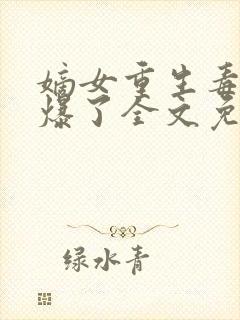 嫡女重生毒
爆了全文免
绿水青